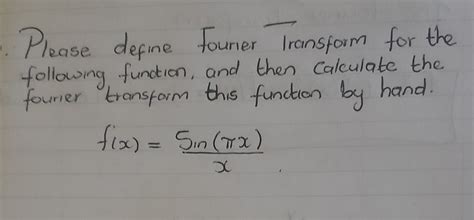 Please define Fourier Transform for the
following function, and then calculate the
fourier transform this function by hand.
f(x) = Sin(πx)/x